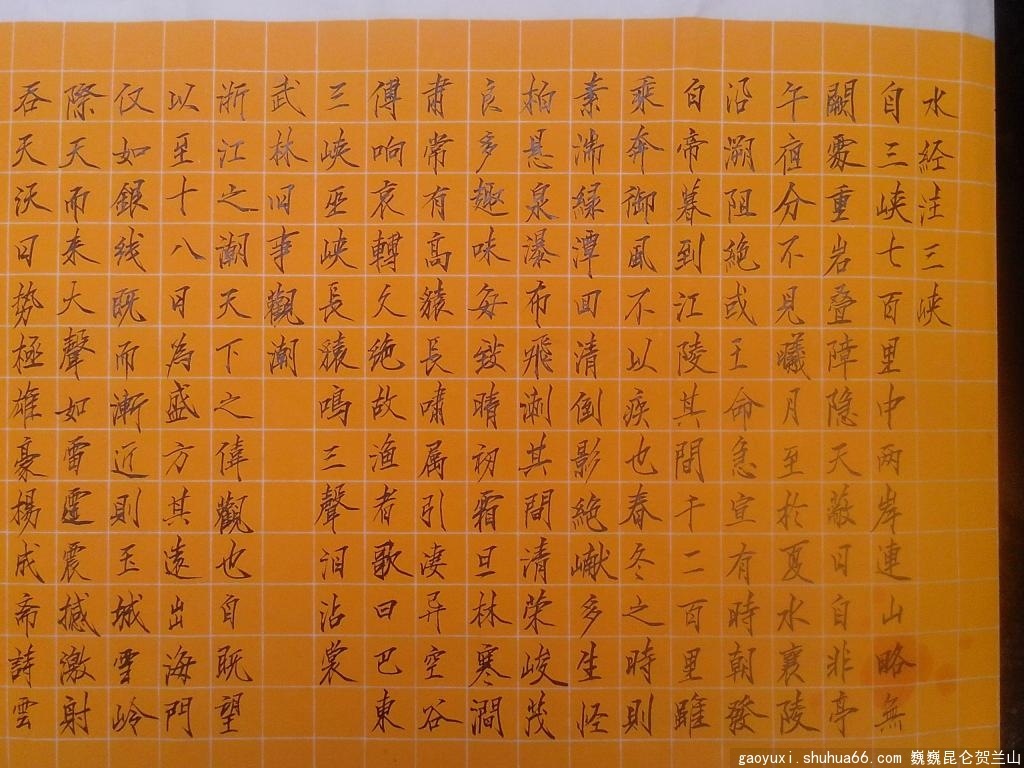 水经注三峡
自三峡七百里中两岸連山略無
闕處重岩叠障隐天蔽日自非亭
午夜分不見曦月至於夏水襄陵
沿溯阻絶或王命急宣有時朝發
白帝暮到江陵其間千二百里雖
乘奔御風不以疾也春冬之時則
素湍緑潭回清倒影絶巘多生怪
柏悬泉瀑布飛漱其間清荣峻茂
良多趣味每致晴初霜旦林寒澗
肃常有高猿長嘯属引凄异空谷
傳响哀轉久绝故渔者歌曰巴東
三峡巫峡長猿鳴三聲泪沾裳
武林旧事觀潮
浙江之潮天下之偉觀也自既望
以至十八日為盛方其遠出海門
仅如銀线既而漸近則玉城雪岭
際天而来大聲如雷霆震撼激射
吞天沃日势極雄豪楊成斋詩雲
gaoyuxi.shuhua66.com 巍巍昆仑贺兰山